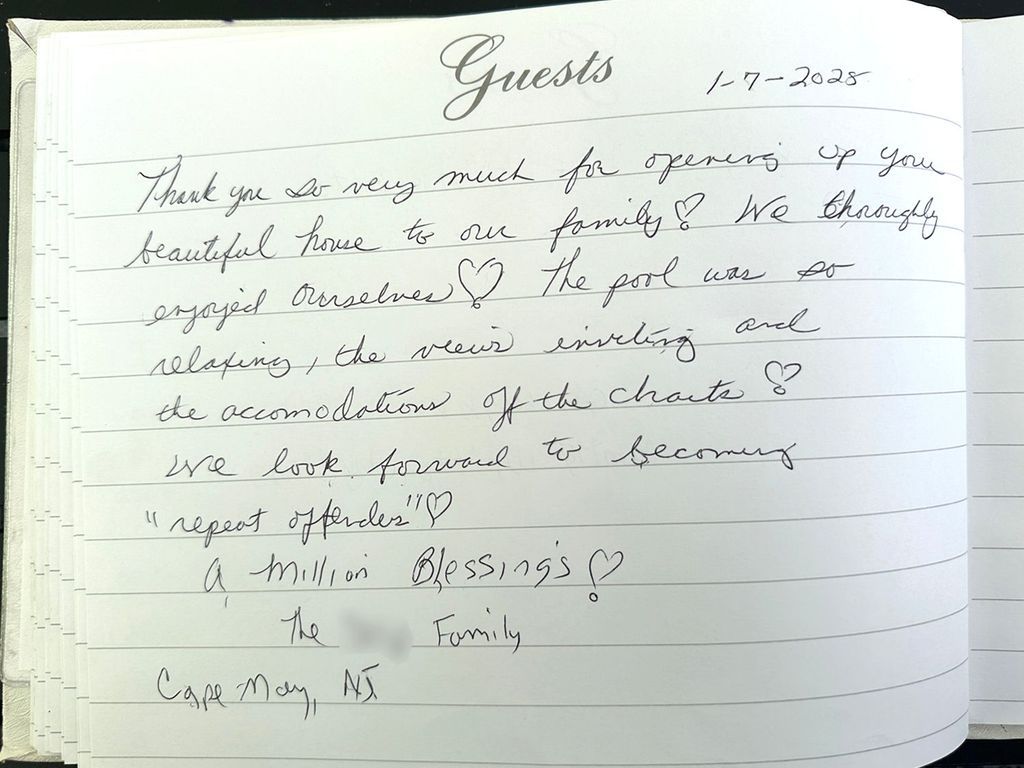 Guests
1-7-2025
Thank you so very much for opening up your
beautiful house to our family! We thoroughly
enjoyed ourselves! The pool was so
relaxing, the views inviting and
the accomodations off the charts!
We look forward to becoming
"repeat offenders"♡
A Million Blessings!
The Family
Cape May, NJ